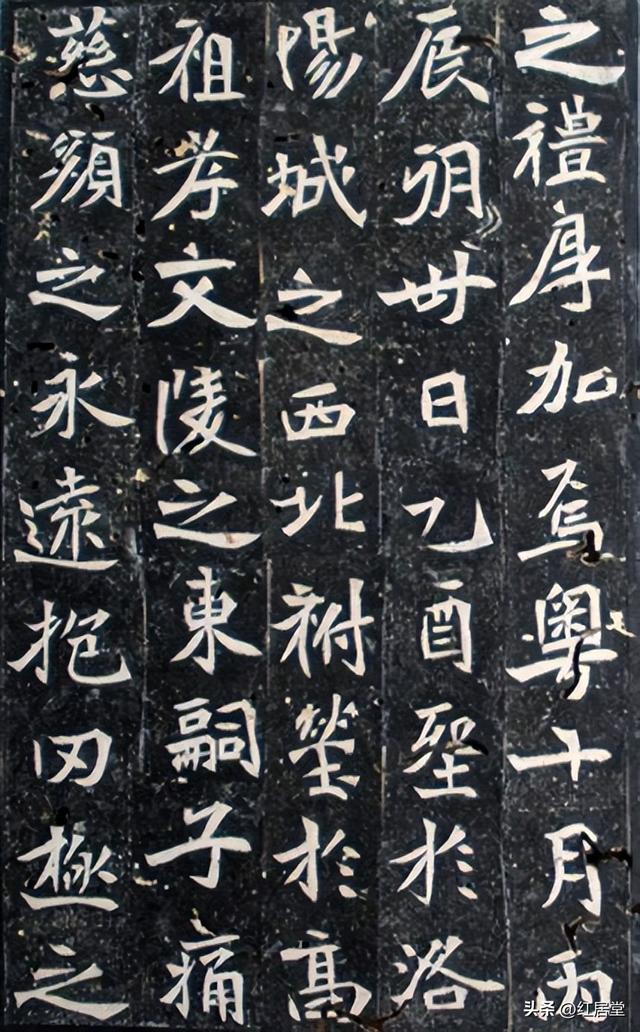 之禮厚加焉粵十月丙
辰朔卅日乙酉塟於洛
陽城之西北祔塋於高
祖孝文陵之東嗣子痛
慈顏之永遠抱罔極之
头条 @红居堂